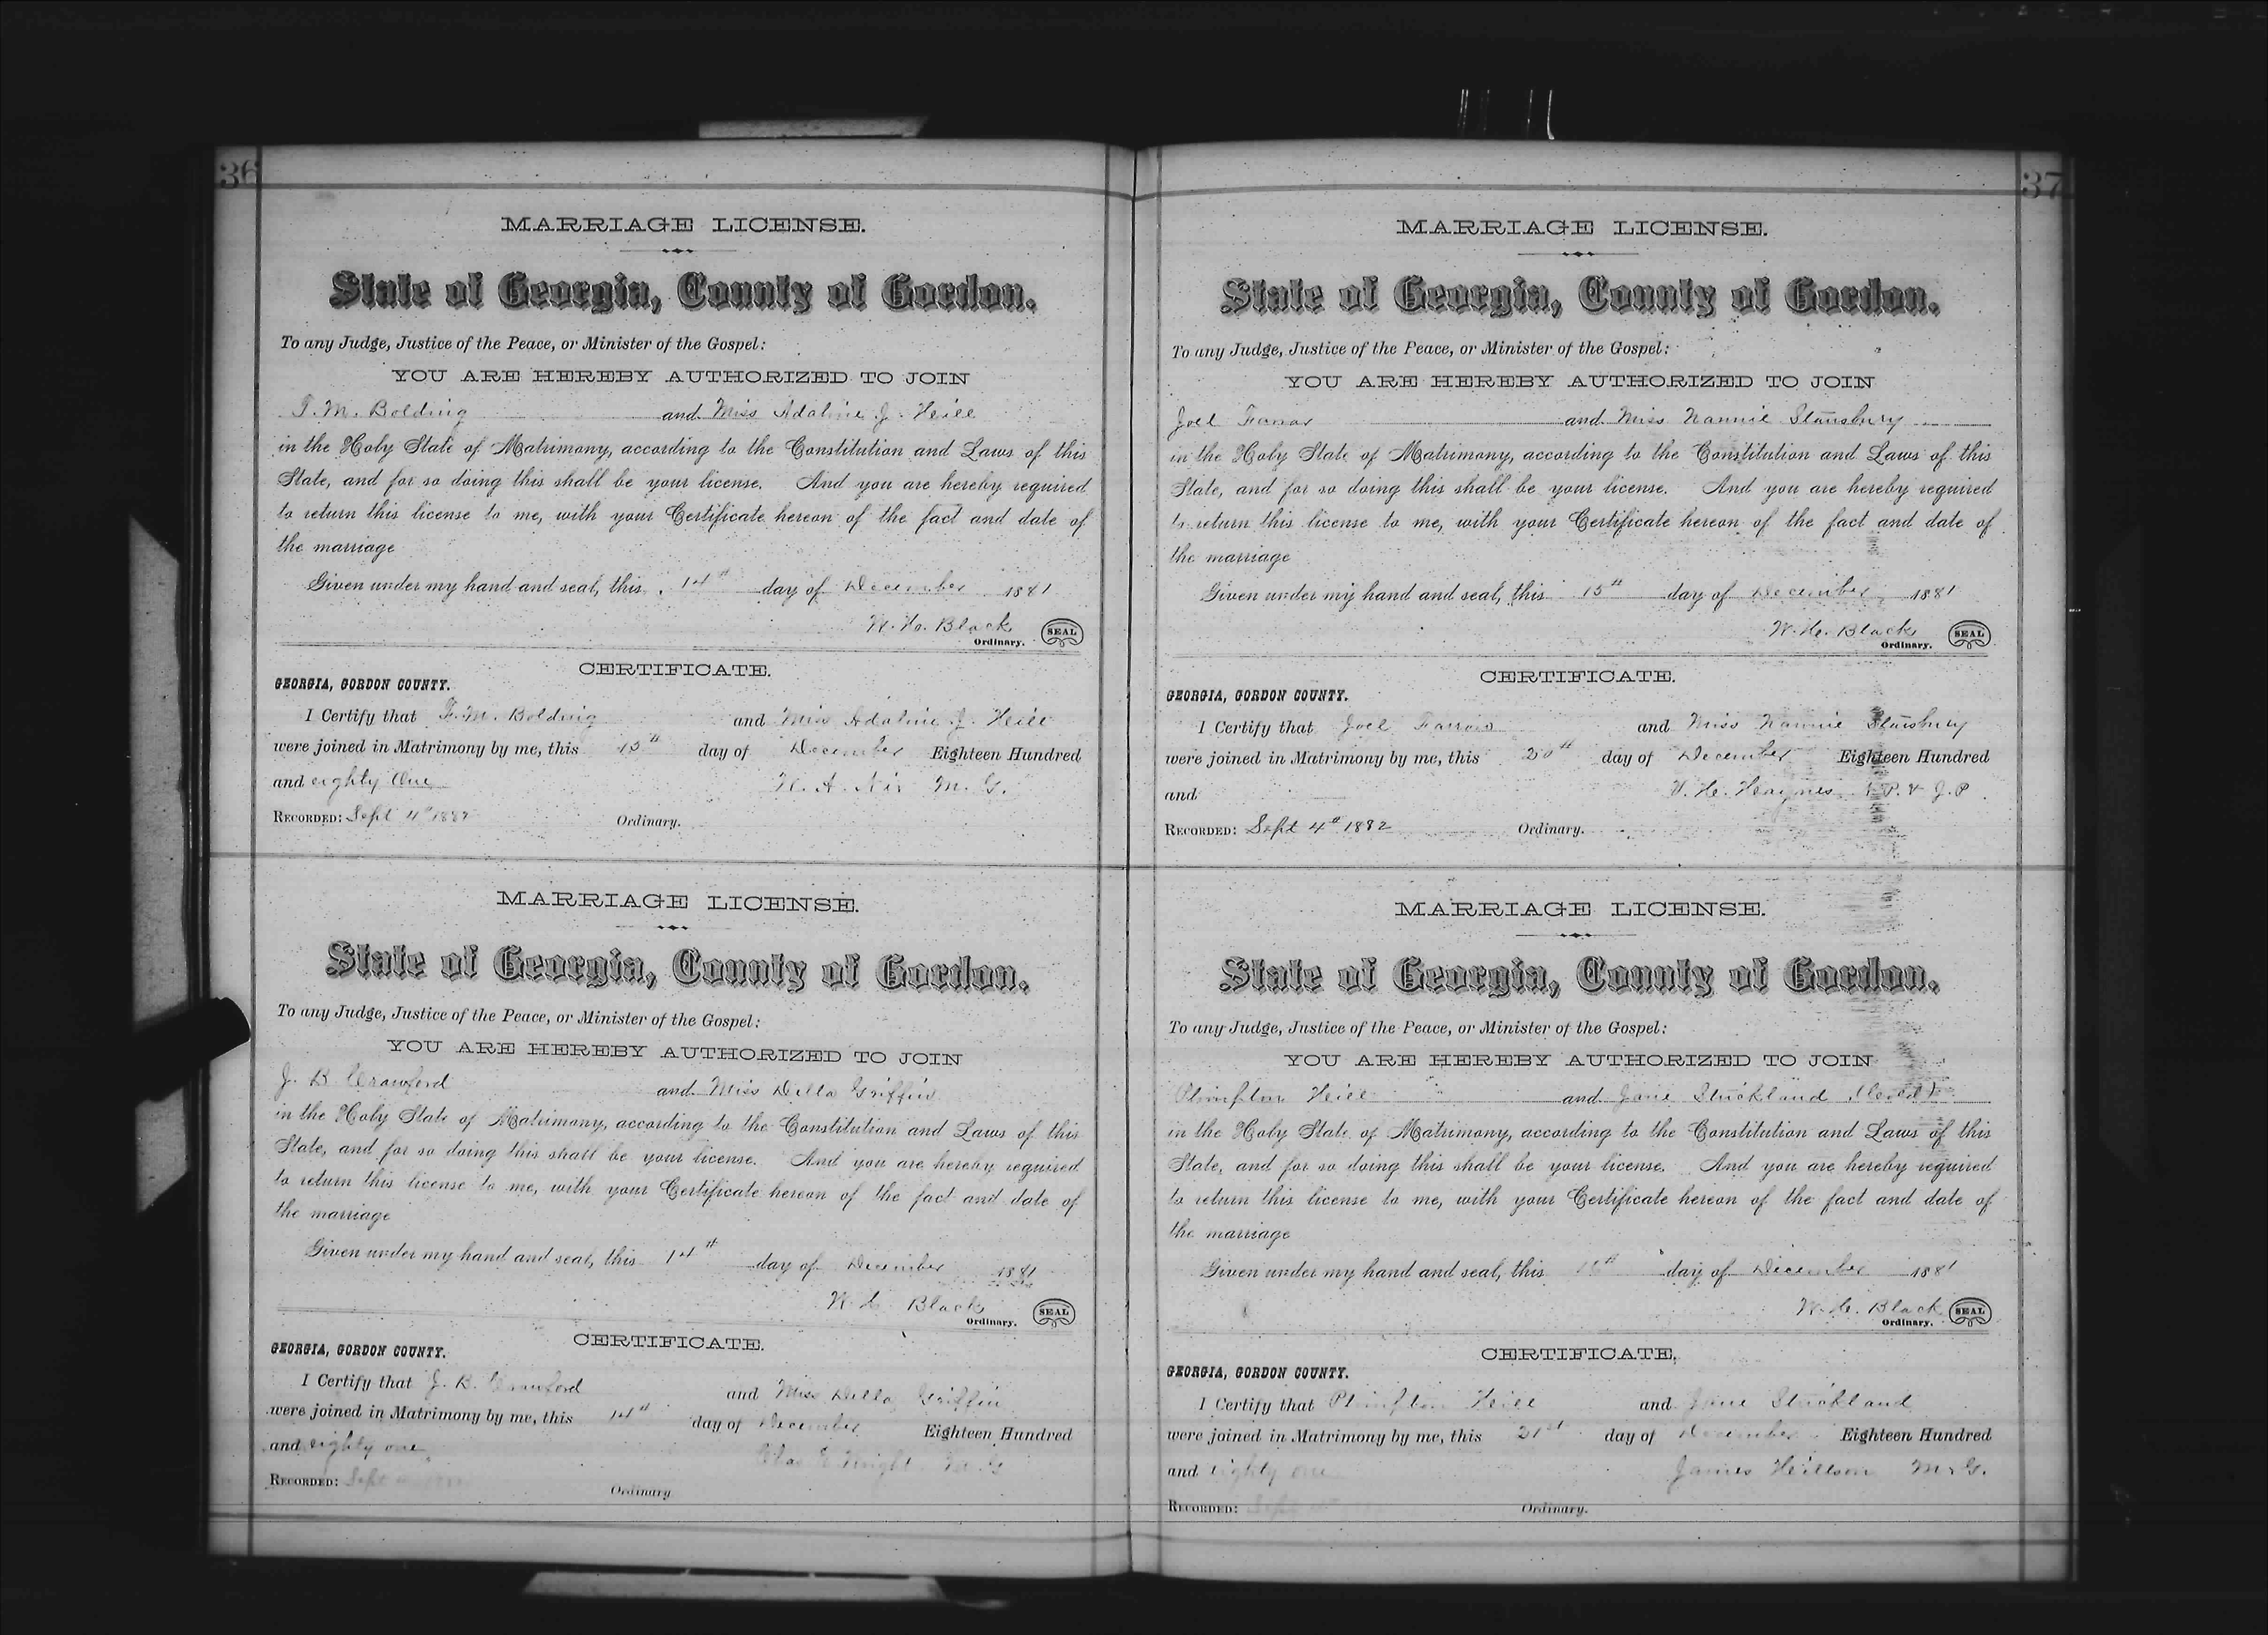 36
MARRIAGE LICENSE.
State of Georgia, County of Gordon.
To any Judge, Justice of the Peace, or Minister of the Gospel:
YOU ARE HEREBY AUTHORIZED TO JOIN
T. M. Bolding and Miss Adaline J. Heill
in the Holy State of Matrimony, according to the Constitution and Laws of this
State, and for so doing this shall be your license. And you are hereby required
to return this license to me, with your Certificate hereon of the fact and date of
the marriage
Given under my hand and seal, this 14th day of December 1881
W. H. Black SEAL
Ordinary.
CERTIFICATE.
GEORGIA, GORDON COUNTY.
I Certify that T. M. Bolding and Miss Adaline J. Heill
were joined in Matrimony by me, this 15th day of December Eighteen Hundred
and eighty One M. G.
RECORDED: Sept 4th 1882 Ordinary.
MARRIAGE LICENSE.
State of Georgia, County of Gordon.
To any Judge, Justice of the Peace, or Minister of the Gospel:
YOU ARE HEREBY AUTHORIZED TO JOIN
J. B Crawford and Miss Della Griffin
in the Holy State of Matrimony, according to the Constitution and Laws of this
State, and for so doing this shall be your license. And you are hereby required
to return this license to me, with your Certificate hereon of the fact and date of
the marriage
Given under my hand and seal, this 14th day of December 1881
W. H. Black SEAL
Ordinary.
CERTIFICATE.
GEORGIA, GORDON COUNTY.
I Certify that J. B. Crawford and Miss Della Griffin
were joined in Matrimony by me, this 14th day of December Eighteen Hundred
and eighty one Wright M. G
RECORDED: Sept Ordinary
37
MARRIAGE LICENSE.
State of Georgia, County of Gordon.
To any Judge, Justice of the Peace, or Minister of the Gospel:
YOU ARE HEREBY AUTHORIZED TO JOIN
Joel Farrar and Miss Nannie Stansbury
in the Holy State of Matrimony, according to the Constitution and Laws of this
State, and for so doing this shall be your license. And you are hereby required
to return this license to me, with your Certificate hereon of the fact and date of
the marriage
Given under my hand and seal, this 15th day of December 1881
W. H. Black SEAL
Ordinary.
CERTIFICATE.
GEORGIA, GORDON COUNTY.
I Certify that Joel Farrar and Miss Nannie Stansbury
were joined in Matrimony by me, this 20th day of December Eighteen Hundred
and V. H. Haynes N. P. & J. P
RECORDED: Sept 4th 1882 Ordinary.
MARRIAGE LICENSE.
State of Georgia, County of Gordon.
To any Judge, Justice of the Peace, or Minister of the Gospel:
YOU ARE HEREBY AUTHORIZED TO JOIN
Plimpton Heill and Jane Strickland (Cold)
in the Holy State of Matrimony, according to the Constitution and Laws of this
State, and for so doing this shall be your license. And you are hereby required
to return this license to me, with your Certificate hereon of the fact and date of
the marriage
Given under my hand and seal, this 16th day of December 1881
W. H. Black SEAL
Ordinary.
CERTIFICATE.
GEORGIA, GORDON COUNTY.
I Certify that Plimpton Heill and Jane Strickland
were joined in Matrimony by me, this 21st day of December Eighteen Hundred
and eighty one James M. G.
RECORDED: Sept Ordinary.